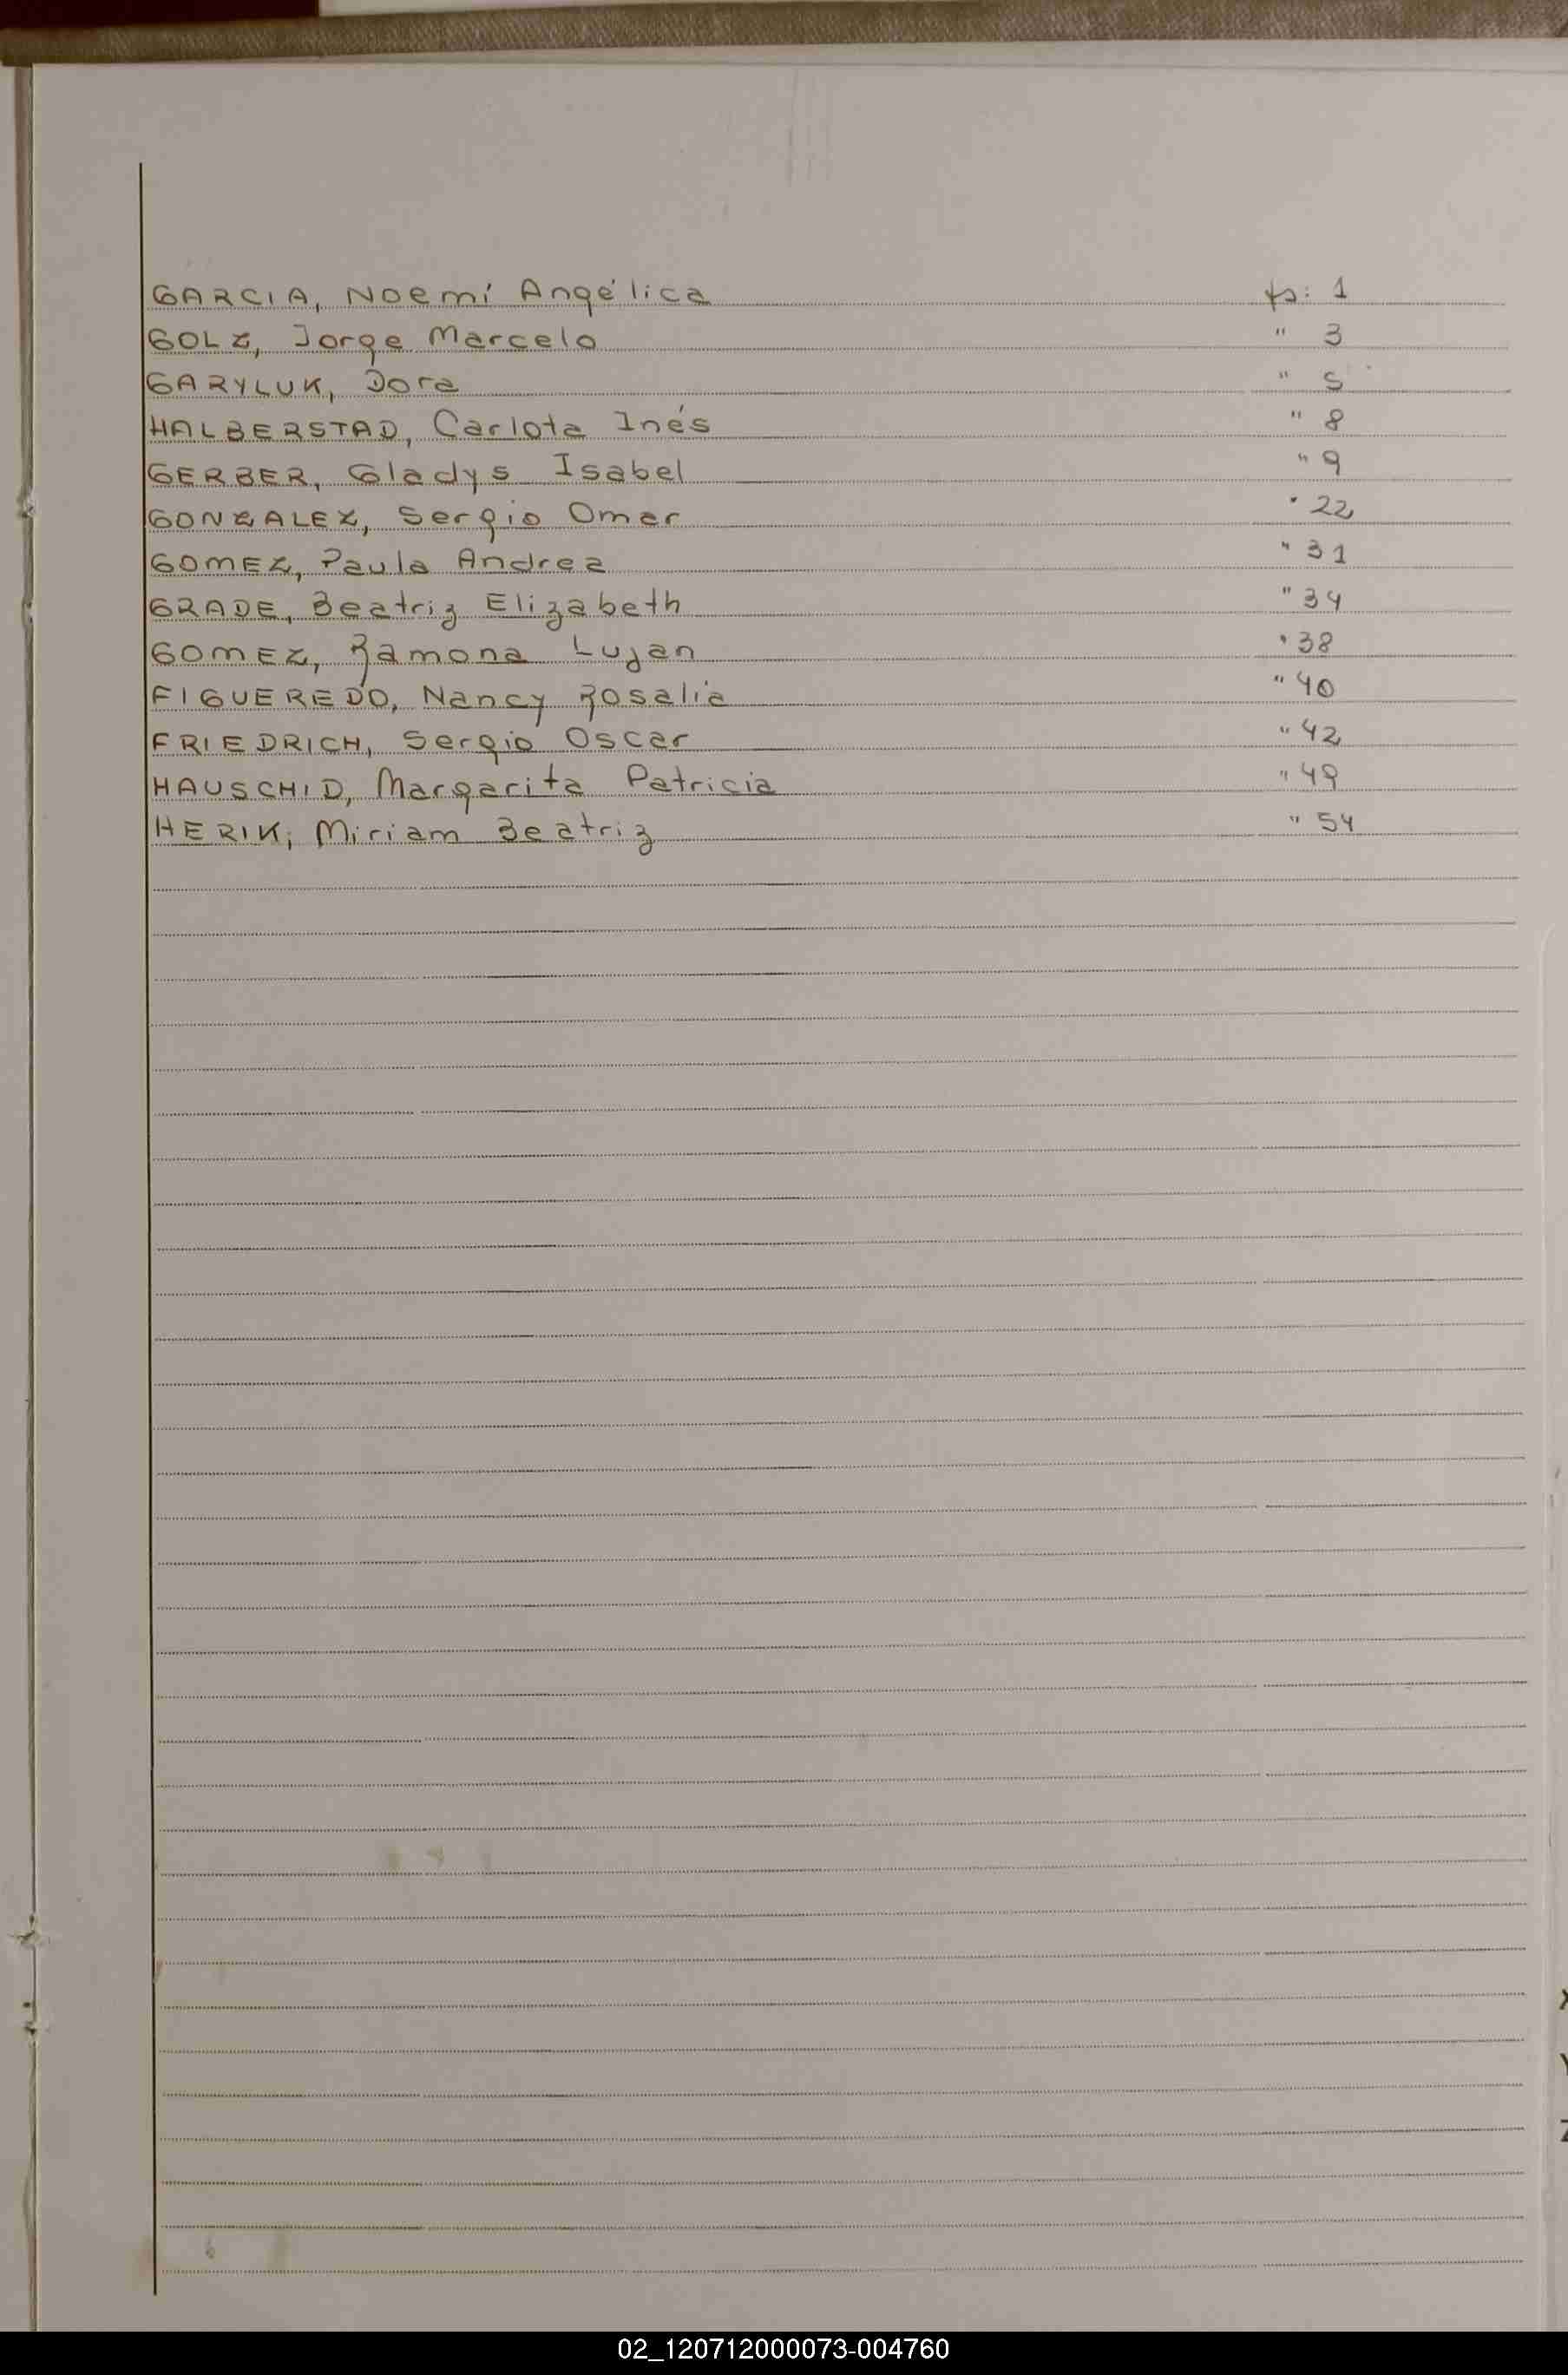 GARCIA, Noemí Angélica fs: 1
GOLZ, Jorge Marcelo " 3
GARYLUK, Dora " 5
HALBERSTAD, Carlota Inés " 8
GERBER, Gladys Isabel " 9
GONZALEZ, Sergio Omar " 22
GOMEZ, Paula Andrea " 31
GRADE, Beatriz Elizabeth " 34
GOMEZ, Ramona Lujan " 38
FIGUEREDO, Nancy Rosalía " 40
FRIEDRICH, Sergio Oscar " 42
HAUSCHID, Margarita Patricia " 49
HERIK, Miriam Beatriz " 54
X
Y
Z
02_120712000073-004760